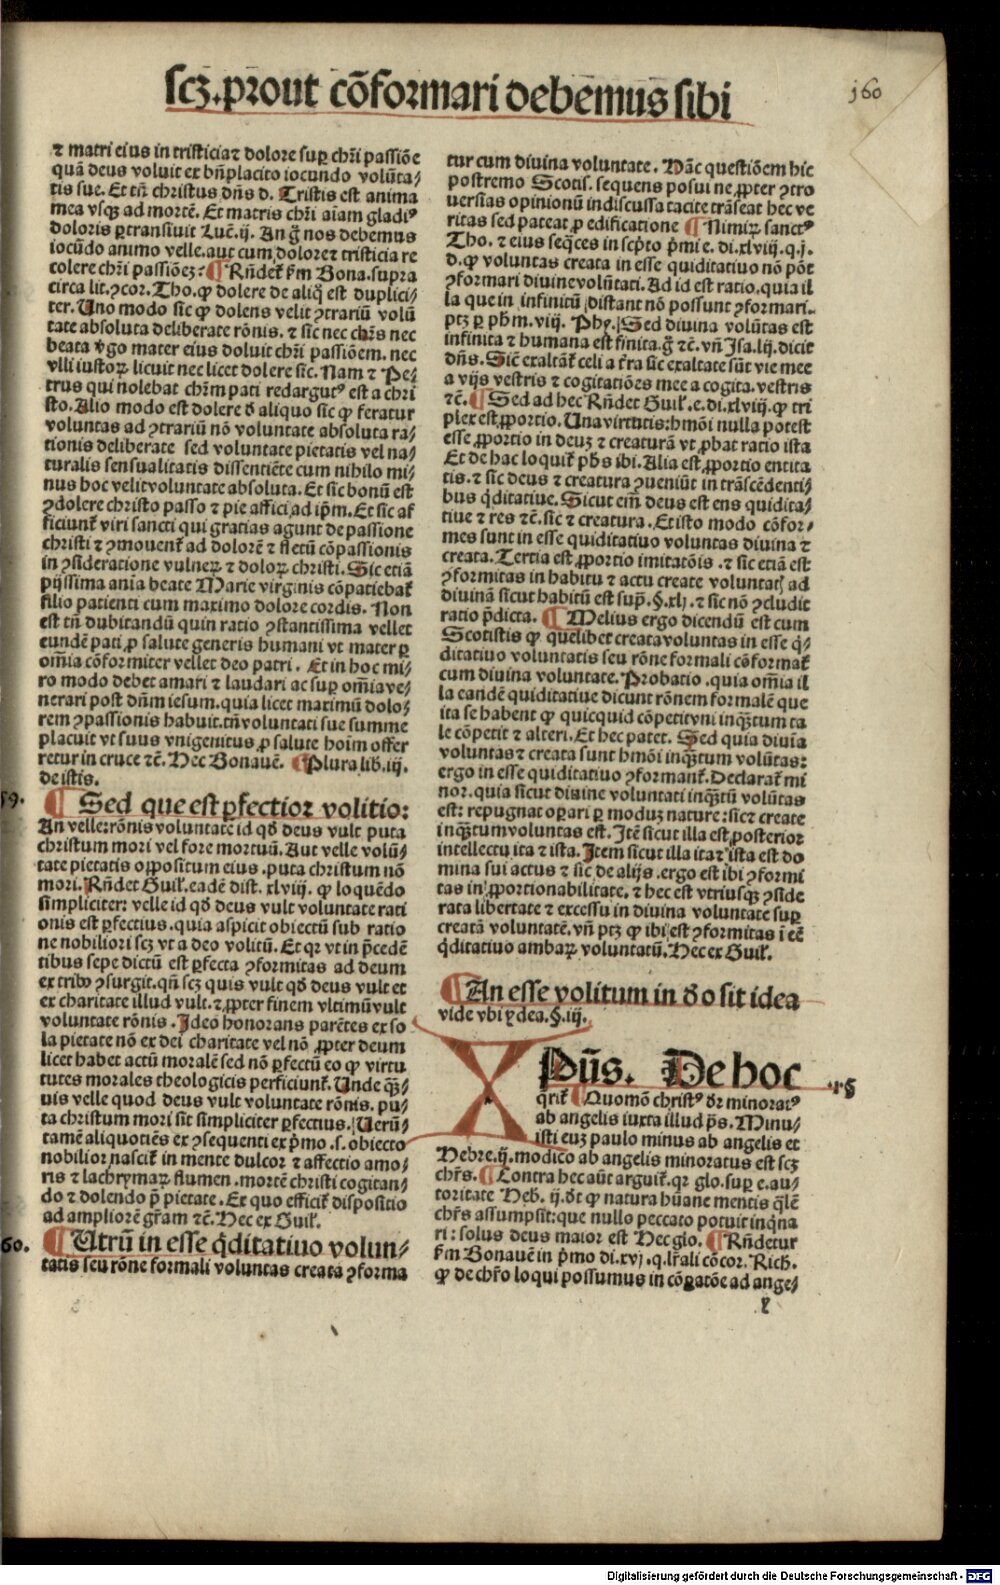 scʒ.prout cōformari debemus sibi
j60
⁊ matri eius in tristicia⁊ dolore suꝑ chr̄i passiōe
quā deus voluit ex bn̄placito iocundo volūta/
tis sue. Et tn̄ christus dn̄s d. Tristis est anima
mea vsqꝫ ad mortē. Et matris chr̄i aīam gladiꝰ
doloris ꝑtransiuit Luc̄.ij. An ḡ nos debemus
iocūdo animo velle.aut cum dolore⁊ tristicia re
colere chr̄i passiōeʒ: ¶ Rn̄det ẜm Bona.supra
circa lit.ꝯcor.Tho.ꝙ dolere de aliq̄ est duplici/
ter. Uno modo sic ꝙ dolens velit ꝯtrariū volū
tate absoluta deliberate rōnis. ⁊ sic nec chr̄s nec
beata v̄go mater eius doluit chr̄i passiōem. nec
vlli iustoꝝ licuit nec licet dolere sic. Nam ⁊ Pe/
trus qui nolebat chr̄m pati redargutꝰ est a chri
sto. Alio modo est dolere ð aliquo sic ꝙ feratur
voluntas ad ꝯtrariū nō voluntate absoluta ra/
tionis deliberate sed voluntate pietatis vel na/
turalis sensualitatis dissentiēte cum nihilo mi/
nus hoc velit voluntate absoluta. Et sic bonū est
ꝯdolere christo passo ⁊ pie affici ad ip̄m. Et sic af
ficiunt̄ viri sancti qui gratias agunt de passione
christi ⁊ ꝯmouent̄ ad dolorē ⁊ fletū cōpassionis
in ꝯsideratione vulneꝝ ⁊ doloꝝ christi. Sic etiā
pijssima anīa beate Marie virginis cōpatiebat̄
filio patienti cum maximo dolore cordis. Non
est tn̄ dubitandū quin ratio ꝯstantissima vellet
eundē pati ꝓ salute generis humani vt mater ꝑ
omīa cōformiter vellet deo patri. Et in hoc mi/
ro modo debet amari ⁊ laudari ac suꝑ omīa ve/
nerari post dn̄m iesum. quia licet maximū dolo/
rem ꝯpassionis habuit. tn̄ voluntati sue summe
placuit vt suus vnigenitus ꝓ salute hoīm offer
retur in cruce ⁊c̄. Hec Bonauē. ¶ Plura lib. iij.
de istis.
59.
¶ Sed que est ꝑfectior volitio:
An velle:rōnis voluntate id qð deus vult puta
christum mori vel fore mortuū. Aut velle volū/
tate pietatis oppositum eius .puta christum nō
mori. Rn̄det Guil̄.eadē dist. xlviij. ꝙ loquēdo
simpliciter: velle id qð deus vult voluntate rati
onis est ꝑfectius. quia aspicit obiectū sub ratio
ne nobiliori scʒ vt a deo volitū. Et qꝛ vt in p̄cedē
tibus sepe dictū est ꝑfecta ꝯformitas ad deum
ex tribꝰ ꝯsurgit. qn̄ scʒ quis vult qð deus vult et
ex charitate illud vult. ⁊ ꝓpter finem vltimū vult
voluntate rōnis. Ideo honorans parētes ex so
la pietate nō ex dei charitate vel nō ꝓpter deum
licet habet actū moralē sed nō ꝑfectū eo ꝙ virtu
tutes morales theologicis perficiunt̄. Unde q̄ʒ/
uis velle quod deus vult voluntate rōnis. pu/
ta christum mori sit simpliciter ꝑfectius. Uerū/
tamē aliquotiēs ex ꝯsequenti ex p̄mo .s. obiecto
nobilior nascit̄ in mente dulcor ⁊ affectio amo/
ris ⁊ lachrymaꝝ flumen. mortē christi cogitan/
do ⁊ dolendo p̄ pietate. Ex quo efficit̄ dispositio
ad ampliorē gr̄am ⁊c̄. Hec ex Guil̄.
60.
¶ Utrū in esse q̄ditatiuo volun/
tatis seu rōne formali voluntas creata ꝯforma
tur cum diuina voluntate. Hāc questiōem hic
postremo Scotis. sequens posui ne ꝓpter ꝯtro
uersias opinionū indiscussa tacite trāseat hec ve
ritas sed pateat ꝓ edificatione ¶ Nimiꝝ sanctꝰ
Tho. ⁊ eius seq̄ces in scp̄to p̄mi e. di.xlviij.q.j.
d.ꝙ voluntas creata in esse quiditatiuo nō pōt
ꝯformari diuine volūtati. Ad id est ratio. quia il
la que in infinitū distant nō possunt ꝯformari.
ptʒ ꝑ ph̄m. viij. Phy. Sed diuina volūtas est
infinita ⁊ humana est finita. ḡ ⁊c̄. vn̄ Isa. lij. dicit
dn̄s. Sic̄ exaltāt̄ celi a t̄ra sic exaltate sūt vie mee
a vijs vestris ⁊ cogitatiōes mee a cogita. vestris
⁊c̄. ¶ Sed ad hec Rn̄det Guil̄. e. di. xlviij. ꝙ tri
plex est ꝓportio. Una virtutis: hmōi nulla potest
esse ꝓportio in deuʒ ⁊ creaturā vt ꝓbat ratio ista
Et de hac loquit̄ ph̄s ibi. Alia est ꝓportio entita
tis. ⁊ sic deus ⁊ creatura ꝯueniūt in trāscēdenti/
bus q̄ditatiue. Sicut em̄ deus est ens quidita/
tiue ⁊ res ⁊c̄. sic ⁊ creatura. Et isto modo cōfor/
mes sunt in esse quiditatiuo voluntas diuina ⁊
creata. Tertia est ꝓportio imitatōis. ⁊ sic etiam est
ꝯformitas in habitu ⁊ actu create voluntat̄ ad
diuinā sicut habitū est sup̄. §. xlj. ⁊ sic nō ꝯcludit
ratio p̄dicta. ¶ Melius ergo dicendū est cum
Scotistis ꝙ quelibet creata voluntas in esse q̄/
ditatiuo voluntatis seu rōne formali cōformat̄
cum diuina voluntate. Probatio. quia omīa il
la eandē quiditatiue dicunt rōnem formalē que
ita se habent ꝙ quicquid cōpetit vni inq̄ʒtum ta
le cōpetit ⁊ alteri. Et hec patet. Sed quia diuīa
voluntas ⁊ creata sunt hmōi inq̄ʒtum volūtas:
ergo in esse quiditatiuo ꝯformant̄. Declarat̄ mi
nor. quia sicut diuine voluntati inq̄ʒtū volūtas
est: repugnat oꝑari ꝑ moduʒ nature: sic⁊ create
inq̄ʒtum voluntas est. Itē sicut illa est posterior
intellectu ita ⁊ ista. Item sicut illa ita⁊ ista est do
mina sui actus ⁊ sic de alijs. ergo est ibi ꝯformi
tas in ꝓportionabilitate. ⁊ hec est vtriusqꝫ ꝯside
rata libertate ⁊ excessu in diuina voluntate suꝑ
creatā voluntatē. vn̄ ptʒ ꝙ ibi est ꝯformitas ī eē
q̄ditatiuo ambaꝝ voluntatū. Hec ex Guil̄.
¶ An esse volitum in ðo sit idea
vide vbi ydea. §. iij.
XPūs. De hoc
.j.§
qrit̄ ¶ Quomō christꝰ ðr minoratꝰ
ab angelis iuxta illud ps̄. Minu/
isti euʒ paulo minus ab angelis et
Hebre. ij. modico ab angelis minoratus est scʒ
chr̄s. ¶ Contra hec aūt arguit̄. qꝛ glo. suꝑ e. au/
toritate Heb. ij. ðt ꝙ natura hūane mentis q̄lē
chr̄s assumpsit: que nullo peccato potuit inq̄na
ri: solus deus maior est Hec glo. ¶ Rn̄detur
ẜm Bonauē in p̄mo di. xvj. q. lr̄ali cōcor. Rich̄.
ꝙ de chr̄o loqui possumus in cōꝑatōe ad ange/
y
Digitalisierung gefördert durch die Deutsche Forschungsgemeinschaft - DFG